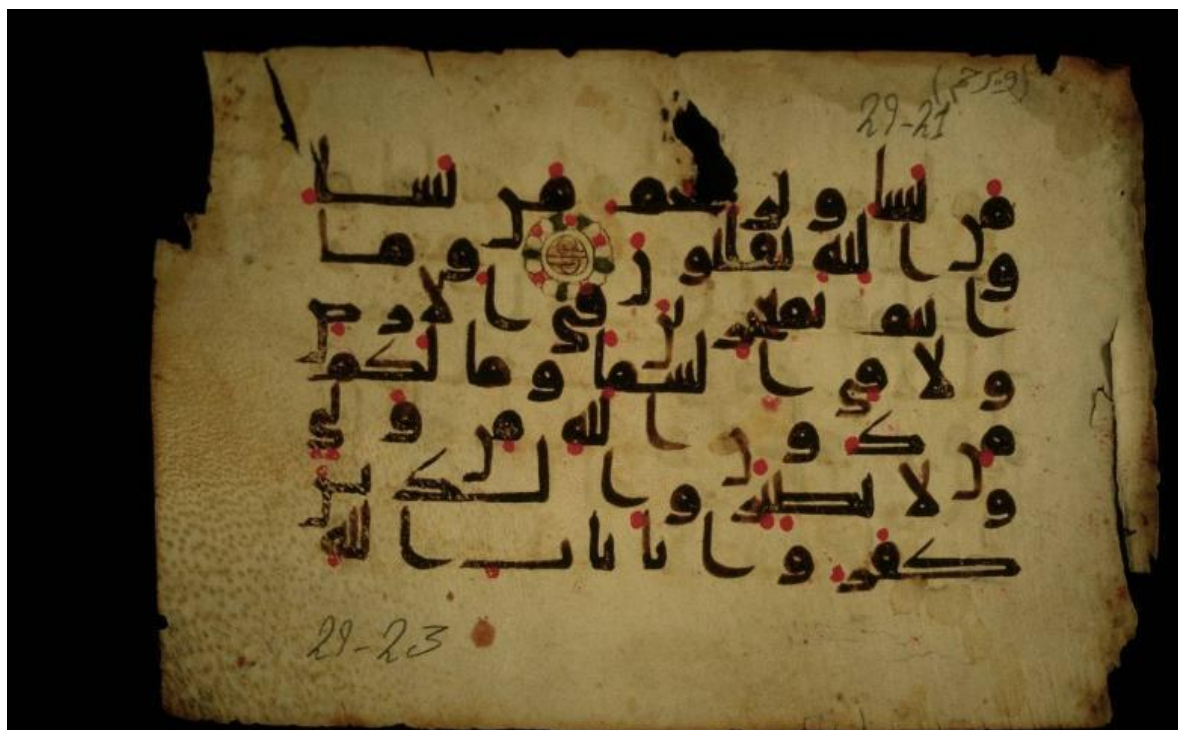 29-21
من يشا ويرحم من يشا
واليه تقلبون وما
انتم بمعجزين في الارض
ولا في السما وما لكم
من دون الله من ولي
ولا نصير والذين
كفروا بايات الله
29-23